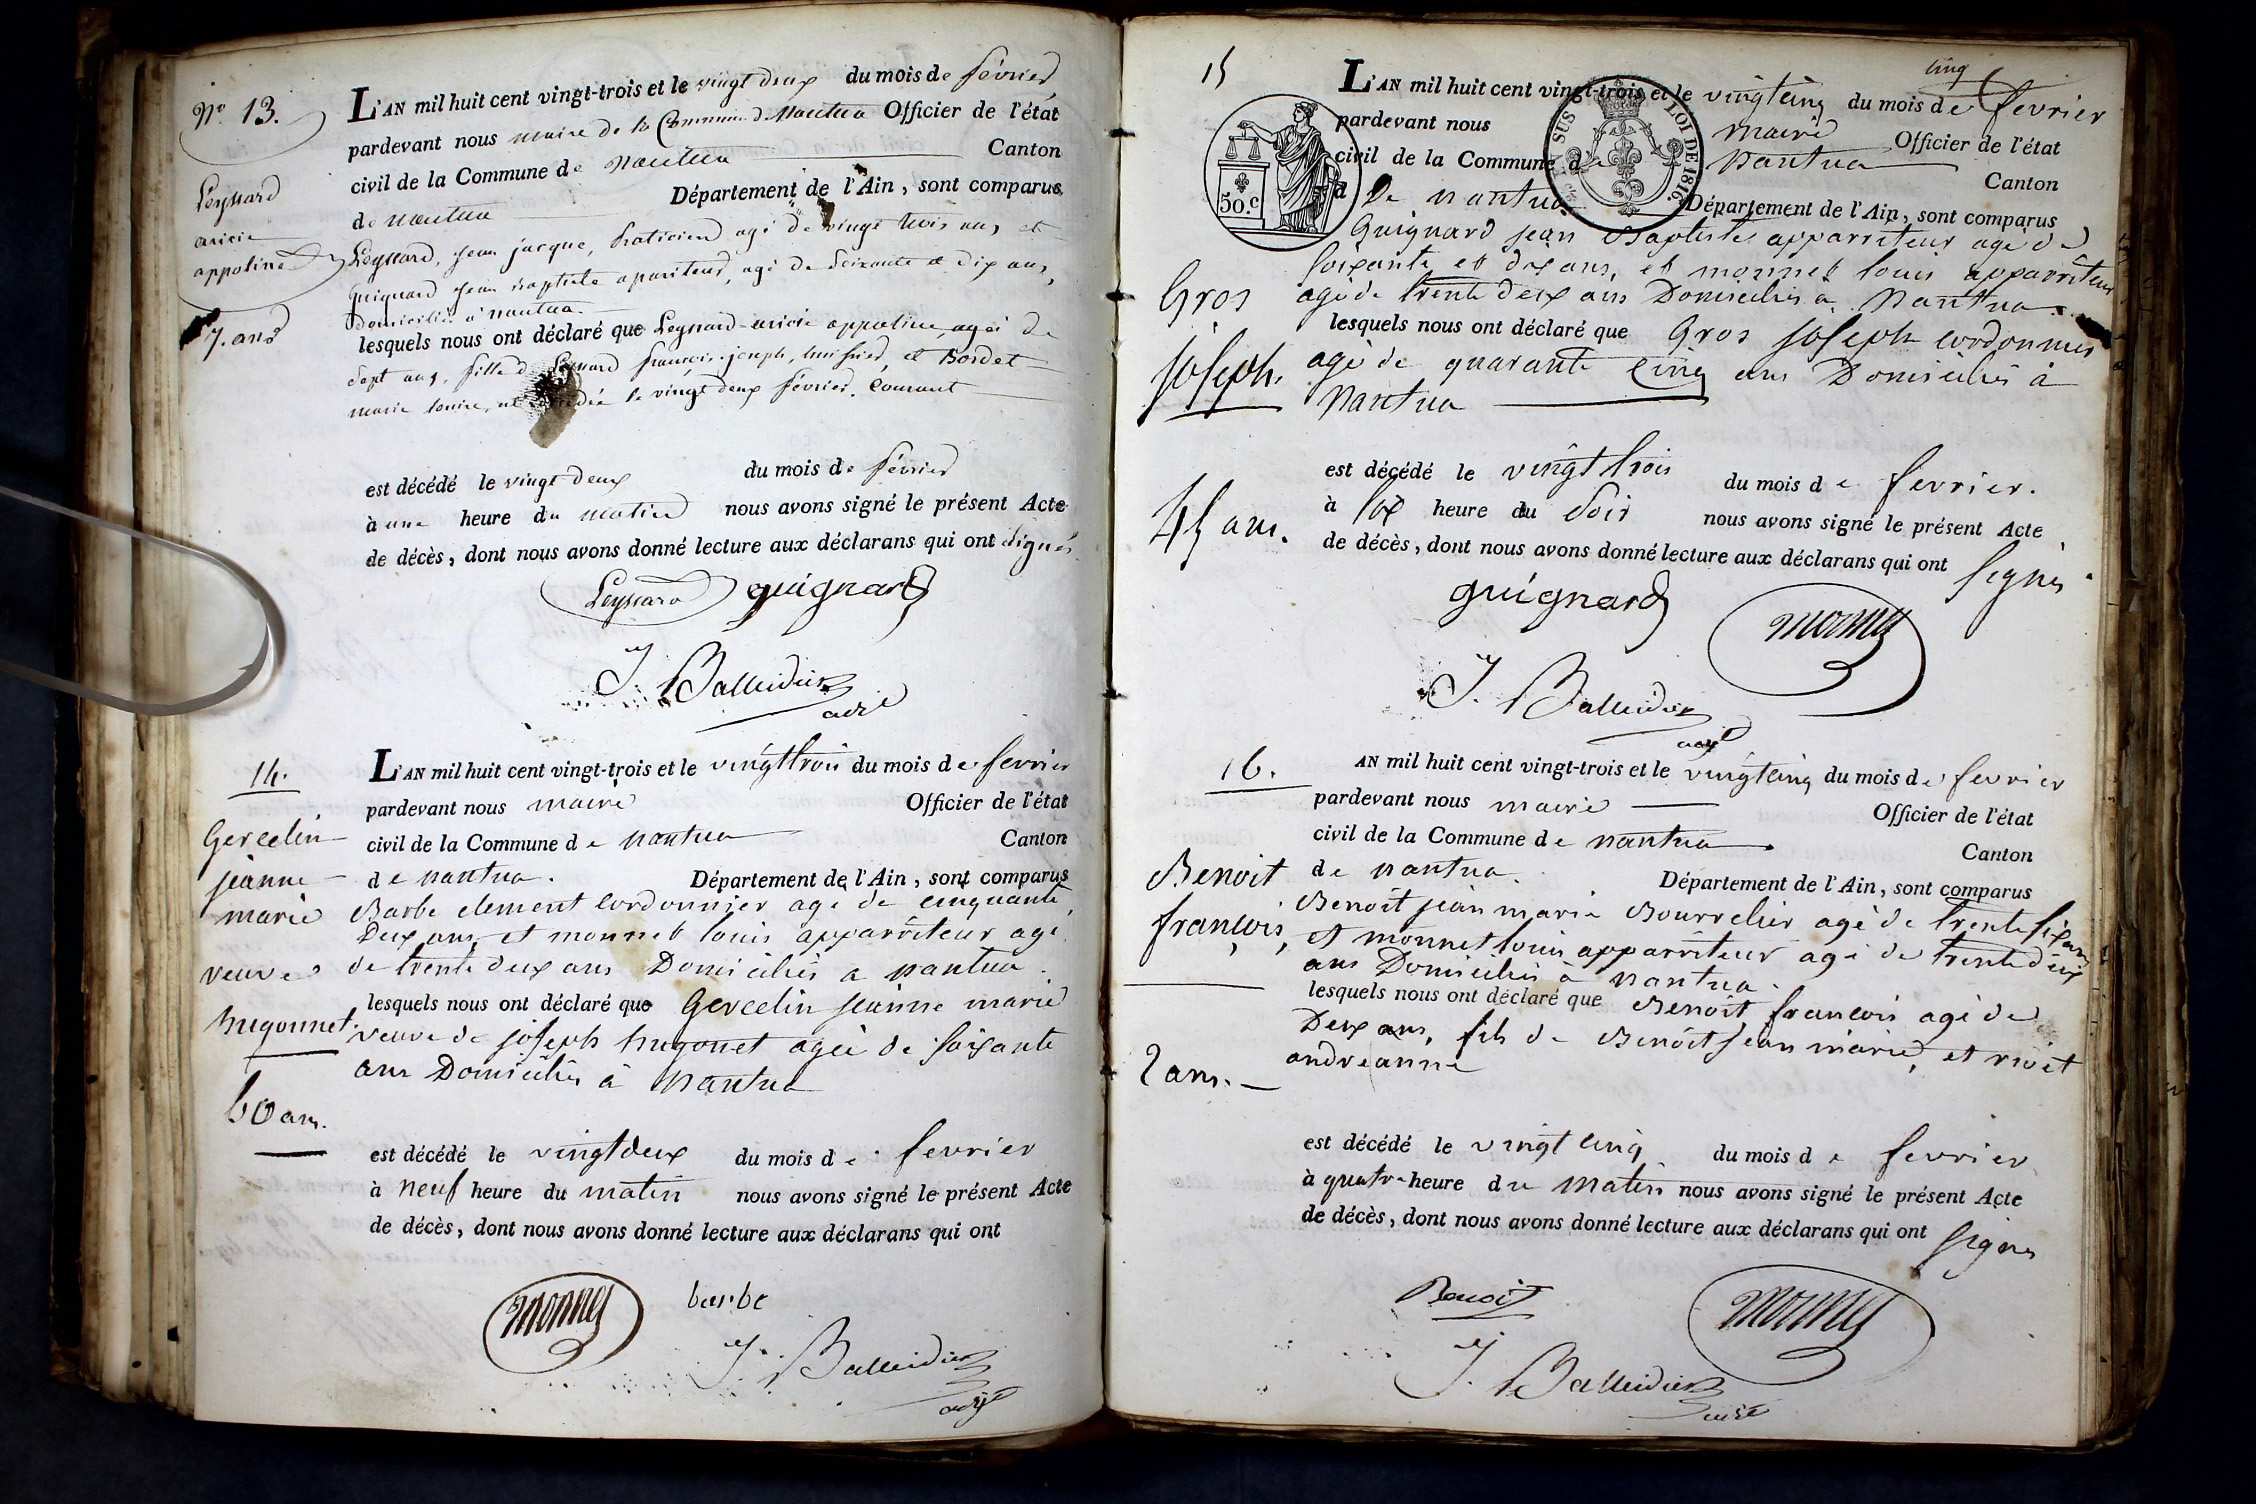 N° 13.
Leyssard
aricie
appoline
7. ans
L'AN mil huit cent vingt-trois et le vingt deux du mois de février
pardevant nous maire de la Commune de Nantua Officier de l'état
civil de la Commune de nantua Canton
de nantua Département de l'Ain, sont comparus
Leyssard, jean jacque, praticien agé de vingt trois ans et
guignard jean baptiste apariteur, agé de soixante et dix ans,
domiciliés a nantua.
lesquels nous ont déclaré que Leyssard aricie appoline, agée de
sept ans, fille d Leyssard françois joseph, huissier, et Bordet
marie louise, est décédée le vingt deux février courant
est décédé le vingt deux du mois de février
à une heure du matin nous avons signé le présent Acte
de décès, dont nous avons donné lecture aux déclarans qui ont signés.
Leyssard guignard
J. Balleidier
14.
Gercelin
jeanne
marie
veuve
hugonnet.
60 ans.
L'AN mil huit cent vingt-trois et le vingt trois du mois de fevrier
pardevant nous maire Officier de l'état
civil de la Commune de nantua Canton
de nantua. Département de l'Ain, sont comparus
Barbe clement cordonnier agé de cinquante
Deux ans, et monnet louis apparriteur agé
de trente deux ans Domiciliés a nantua.
lesquels nous ont déclaré que Gercelin jeanne marie
veuve de joseph hugonet agée de soixante
ans Domiciliés à nantua
est décédé le vingt deux du mois de fevrier
à neuf heure du matin nous avons signé le présent Acte
de décès, dont nous avons donné lecture aux déclarans qui ont
monnet barbe
J. Balleidier
15
Gros
joseph.
45 ans.
50.c
LOI DE 1816.
cinq
L'AN mil huit cent vingt-trois et le vingt cinq du mois de fevrier
pardevant nous maire Officier de l'état
civil de la Commune de nantua Canton
d De nantua Département de l'Ain, sont comparus
Guignard jean Baptiste apparriteur agé de
soixante et dix ans, et monnet louis apparriteur
agé de trente deux ans Domiciliés à Nantua.
lesquels nous ont déclaré que Gros joseph cordonnier
agé de quarante cinq ans Domiciliés à
Nantua
est décédé le vingt trois du mois de fevrier.
à six heure du soir nous avons signé le présent Acte
de décès, dont nous avons donné lecture aux déclarans qui ont signés
guignard monnet
J. Balleidier
16.
Benoit
françois,
2 ans.
AN mil huit cent vingt-trois et le vingt cinq du mois de fevrier
pardevant nous maire Officier de l'état
civil de la Commune de nantua Canton
de nantua. Département de l'Ain, sont comparus
Benoit jean marie Bourrelier agé de trente six ans
et monnet louis apparriteur agé de trente deux
ans Domiciliés à nantua.
lesquels nous ont déclaré que Benoit francois agé de
Deux ans, fils de Benoit jean marie, et
andreanne
est décédé le vingt cinq du mois de fevrier
à quatre heure du matin nous avons signé le présent Acte
de décès, dont nous avons donné lecture aux déclarans qui ont signés
Benoit monnet
J. Balleidier